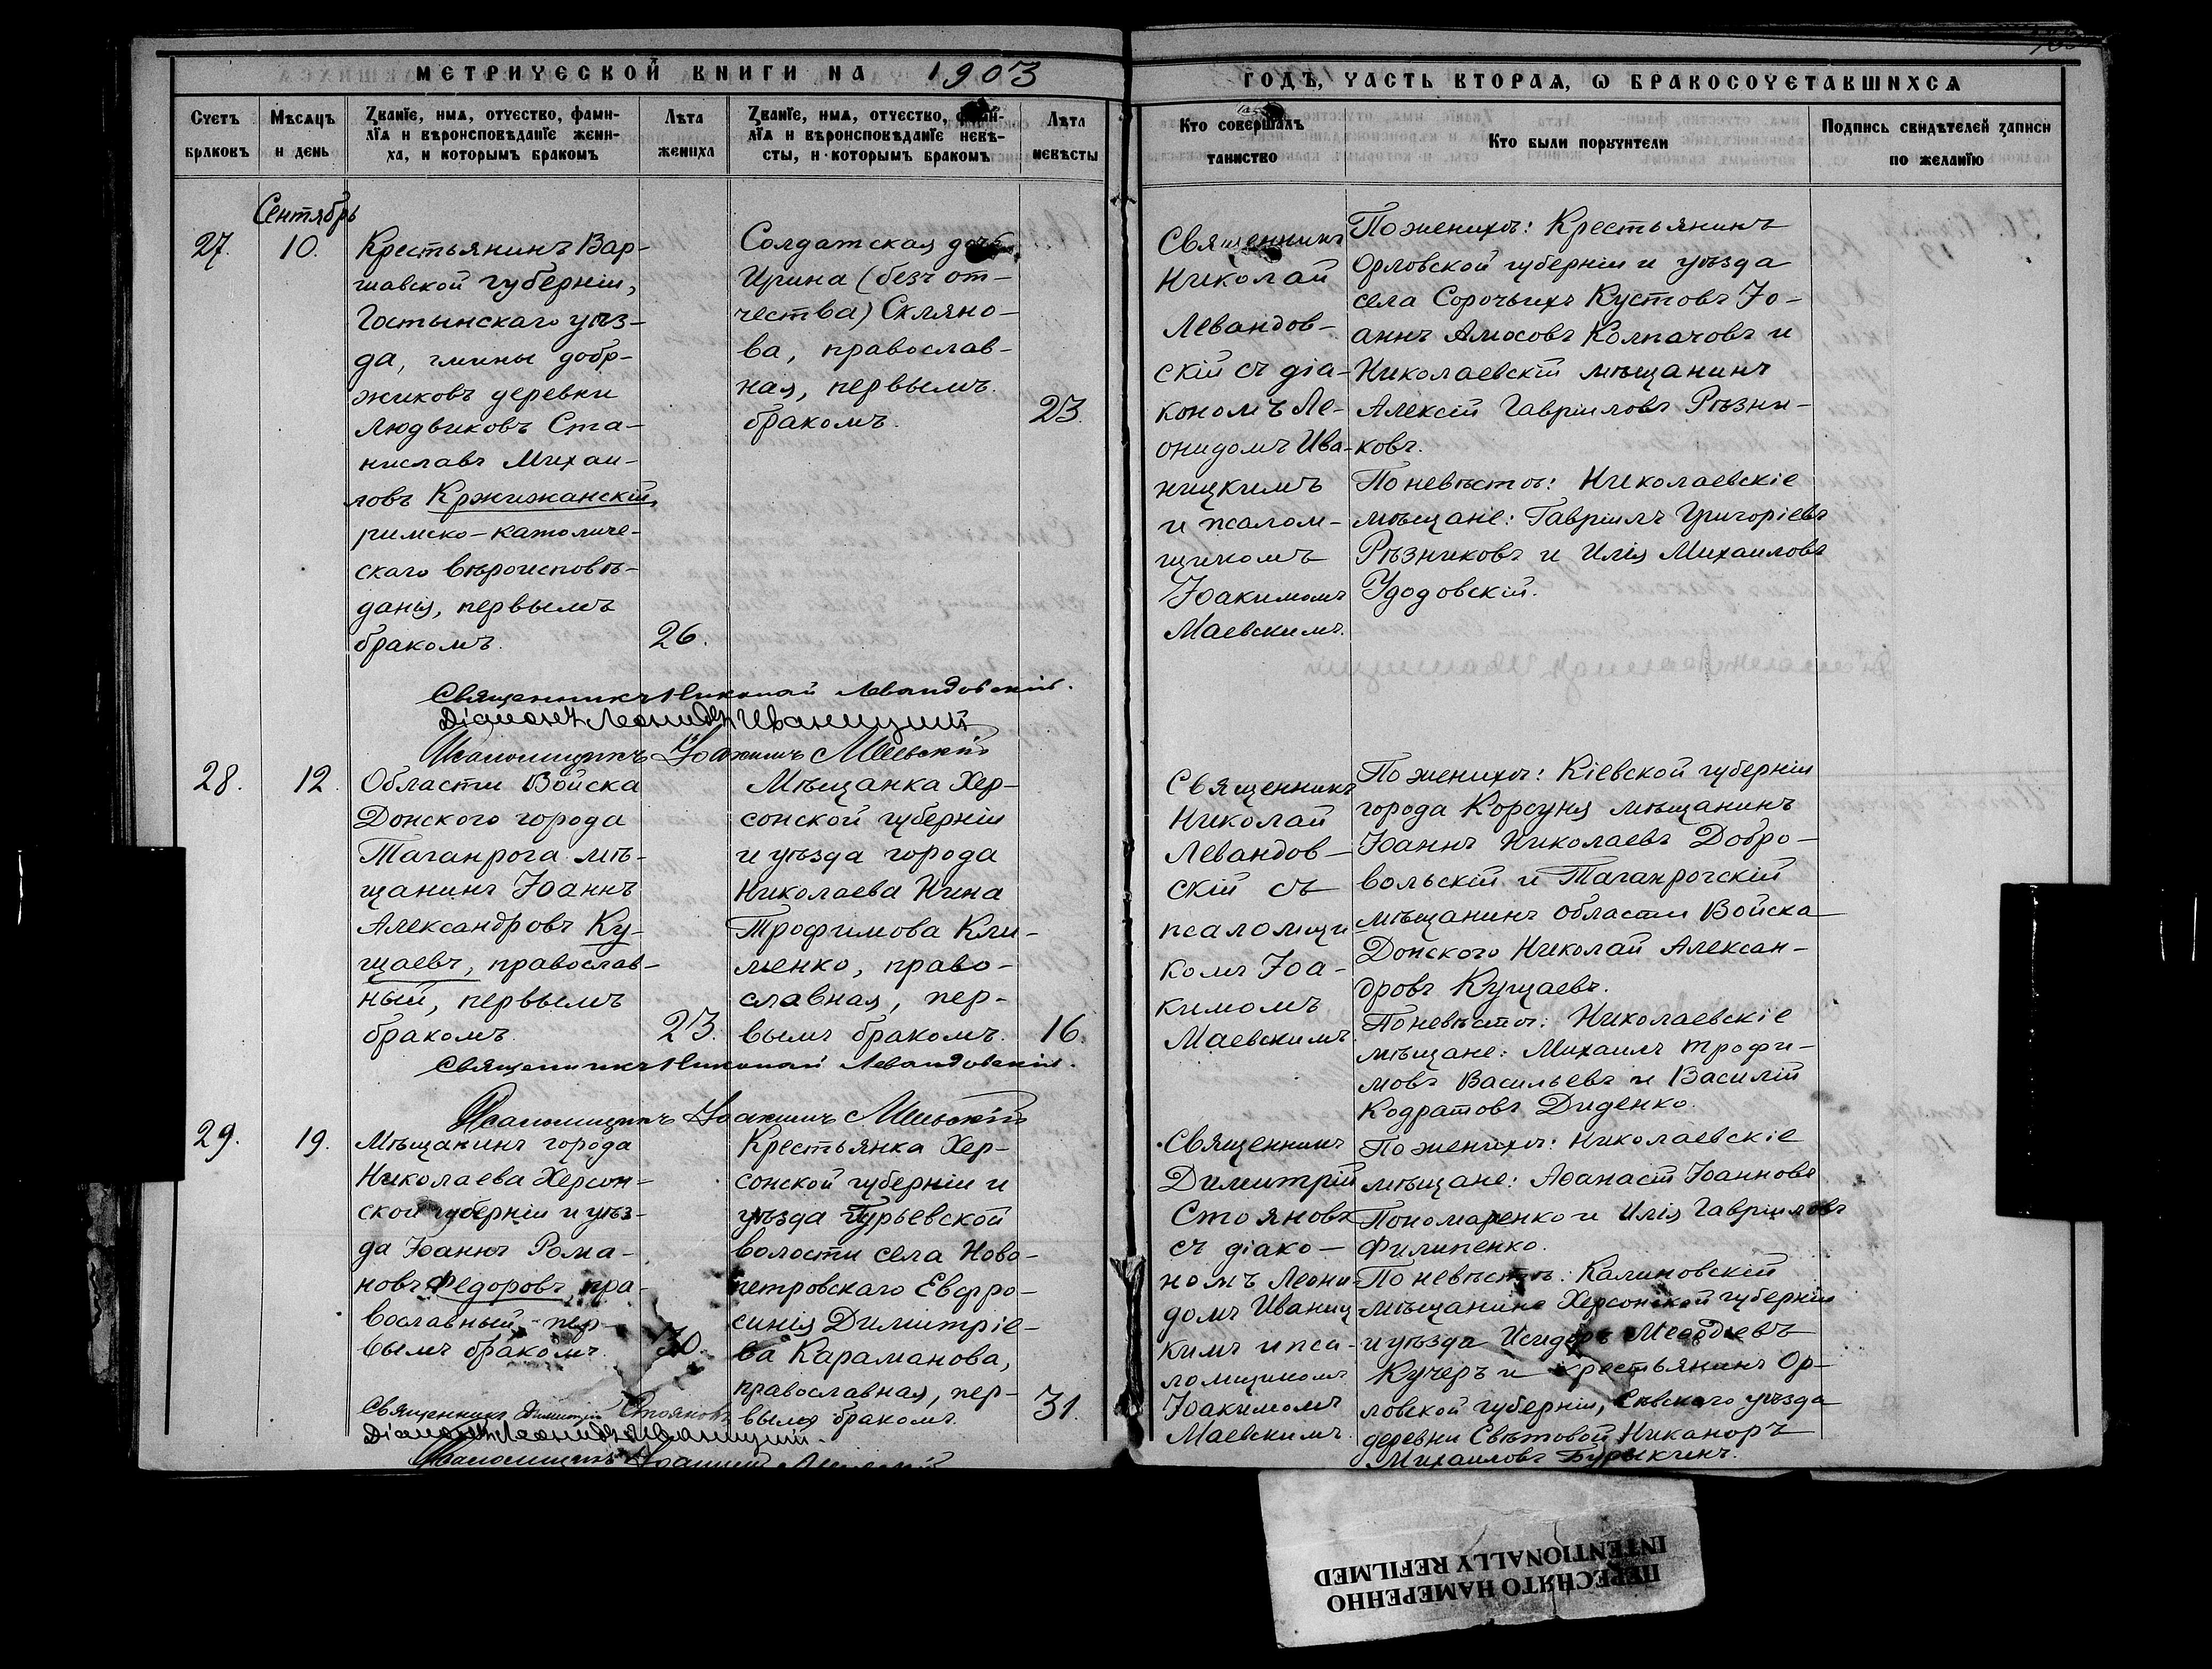 МЕТРИЧЕСКОЙ КНИГИ НА 1903
ГОДЪ, ЧАСТЬ ВТОРАЯ, Ѡ БРАКОСОЧЕТАВШИХСЯ
Счетъ браковъ
Мѣсяцъ и день
Званіе, имя, отчество, фами-
лія и вѣроисповѣданіе жени-
ха, и которымъ бракомъ
Лѣта жениха
Званіе, имя, отчество, фами-
лія и вѣроисповѣданіе невѣ-
сты, и которымъ бракомъ
Лѣта невѣсты
Кто совершалъ таинство
Кто были поручители
Подпись свидѣтелей записи по желанію
Сентябрь
27.
10.
Крестьянинъ Вар-
шавской губерніи,
Гостынскаго уѣз-
да, гмины добр-
жиковъ деревни
Людвиковъ Ста-
ниславъ Михаи-
ловъ Кржижанскій,
римско-католиче-
скаго вѣроисповѣ-
данія, первымъ
бракомъ.
26.
Солдатская дочь
Ирина (безъ от-
чества) Скляно-
ва, православ-
ная, первымъ
бракомъ.
23.
Священникъ
Николай
Левандов-
скій съ діа-
кономъ Ле-
онидомъ Ива-
ницкимъ
и псалом-
щикомъ
Іоакимомъ
Маевскимъ.
По женихѣ: Крестьянинъ
Орловской губерніи и уѣзда
села Сорочьихъ Кустовъ Іо-
аннъ Амосовъ Колпачовъ и
Николаевскій мѣщанинъ
Алексій Гавріиловъ Рѣзни-
ковъ.
По невѣстѣ: Николаевскіе
мѣщане: Гавріилъ Григоріевъ
Рѣзниковъ и Илія Михаиловъ
Удодовскій.
Священникъ Николай Левандовскій.
Діаконъ Леонидъ Иваницкій
Псаломщикъ Іоакимъ Маевскій
28.
12.
Области Войска
Донского города
Таганрога мѣ-
щанинъ Іоаннъ
Александровъ Ку-
щаевъ, православ-
ный, первымъ
бракомъ.
23.
Мѣщанка Хер-
сонской губерніи
и уѣзда города
Николаева Нина
Трофимова Кли-
менко, право-
славная, пер-
вымъ бракомъ.
16.
Священникъ
Николай
Левандов-
скій съ
псаломщи-
комъ Іоа-
кимомъ
Маевскимъ.
По женихѣ: Кіевской губерніи
города Корсуня мѣщанинъ
Іоаннъ Николаевъ Добро-
вольскій и Таганрогскій
мѣщанинъ области Войска
Донского Николай Алексан-
дровъ Кущаевъ.
По невѣстѣ: Николаевскіе
мѣщане: Михаилъ Трофи-
мовъ Васильевъ и Василій
Кодратовъ Диденко.
Священникъ Николай Левандовскій.
Псаломщикъ Іоакимъ Маевскій
29.
19.
Мѣщанинъ города
Николаева Херсон-
ской губерніи и уѣз-
да Іоаннъ Рома-
новъ Федоровъ, пра-
вославный, пер-
вымъ бракомъ.
30.
Крестьянка Хер-
сонской губерніи и
уѣзда Гурьевской
волости села Ново-
петровскаго Евфро-
синія Димитріе-
ва Караманова,
православная, пер-
вымъ бракомъ.
31.
Священникъ
Димитрій
Стояновъ
съ діако-
номъ Леони-
домъ Иваниц-
кимъ и пса-
ломщикомъ
Іоакимомъ
Маевскимъ.
По женихѣ: Николаевскіе
мѣщане: Аѳанасій Іоанновъ
Пономаренко и Илія Гавріиловъ
Филипенко.
По невѣстѣ: Калиновскій
мѣщанинъ Херсонской губерніи
и уѣзда Исидоръ Меѳодіевъ
Кучеръ и крестьянинъ Ор-
ловской губерніи, Сѣвскаго уѣзда
деревни Свѣтовой Никаноръ
Михаиловъ Бурыкинъ.
Священникъ Димитрій Стояновъ
Діаконъ Леонидъ Иваницкій.
Псаломщикъ Іоакимъ Маевскій
ПЕРЕСНЯТО НАМЕРЕННО
INTENTIONALLY REFILMED